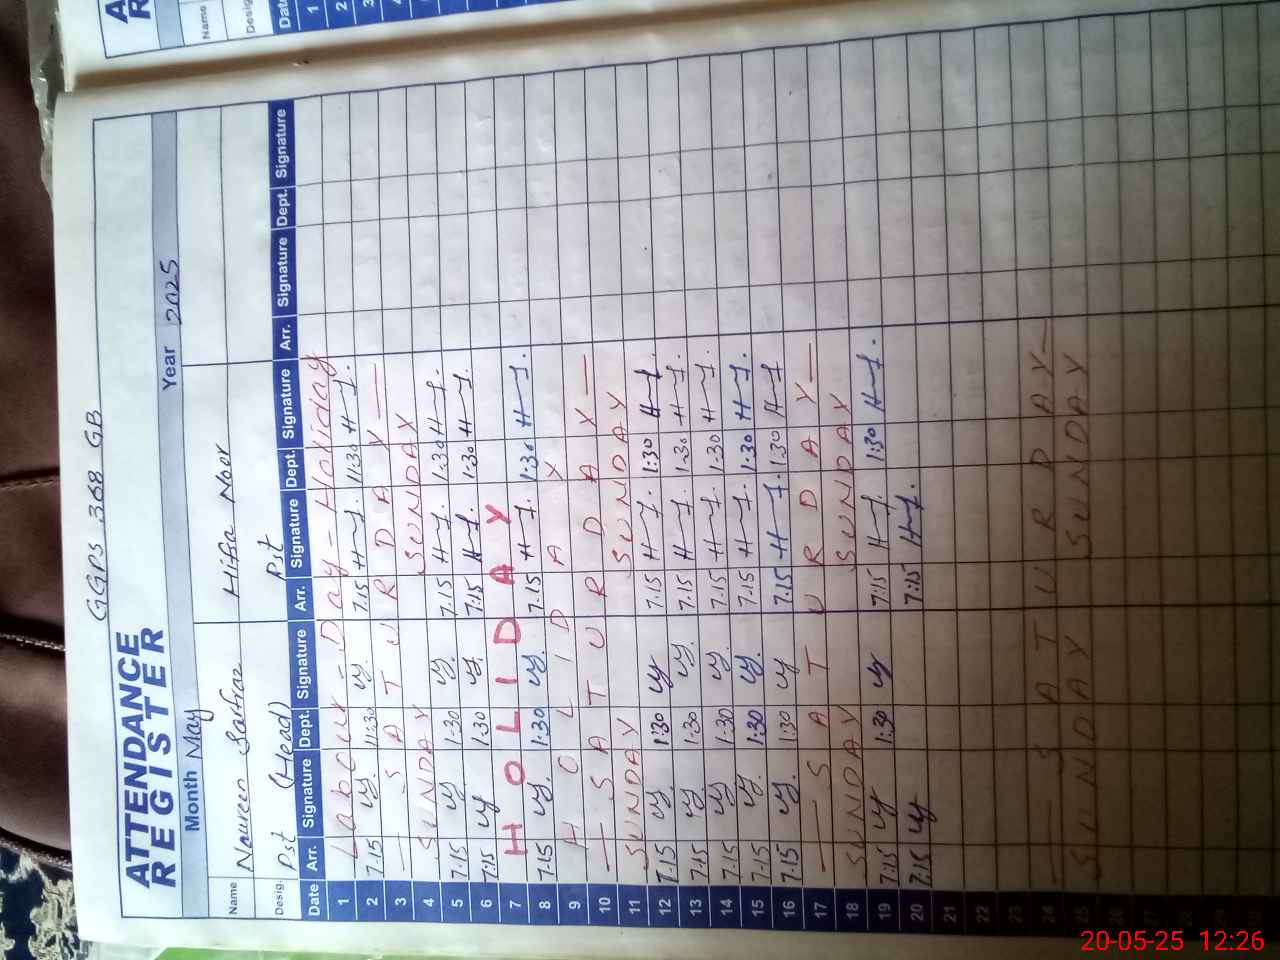 GGPS 368 GB
ATTENDANCE
REGISTER
Month May Year 2025
Name Naureen Safraz Hifza Noor
Desig. Pst (Head) Pst
Date Arr. Signature Dept. Signature Arr. Signature Dept. Signature Arr. Signature Dept. Signature
1 Labour - Day - Holiday
2 7.15 11:30 7.15 11:30
3 — SATURDAY —
4 SUNDAY SUNDAY
5 7.15 1.30 7.15 1.30
6 7:15 1.30 7:15 1.30
7 HOLIDAY
8 7.15 1:30 7.15 1:30
9 HOLIDAY
10 — SATURDAY —
11 SUNDAY SUNDAY
12 7.15 1:30 7.15 1:30
13 7.15 1:30 7.15 1:30
14 7.15 1:30 7.15 1:30
15 7.15 1:30 7.15 1:30
16 7.15 1:30 7.15 1:30
17 — SATURDAY —
18 SUNDAY SUNDAY
19 7:15 1:30 7:15 1:30
20 7:15 7:15
21
22
23
24 — SATURDAY —
25 SUNDAY SUNDAY
26
27
28
29
Name
Desig
Date
1
2
3
20-05-25 12:26